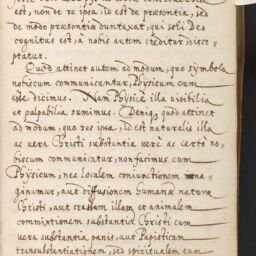 est, non de re ipsa, id est de præsentia, sed
de modo præsentiæ duntaxat, qui soli Deo
cognitus est, à nobis autem creditur, disce
ptatur.
Quod attinet autem ad modum, quo symbola
nobiscum communicantur, Physicum cum
esse dicimus. Nam Physicè illa visibilia
et palpabilia sumimus. Deniq quod attinet
ad modum, quo res ipsa, id est naturalis illa
ac vera Christi substantia verè ac certò no,
biscum communicatur, non facimus eum
Physicum, nec localem coniunctionem ima,
ginamur, aut diffusionem humanæ naturæ
Christi, aut crassam illam et animalem
commixtionem substantiæ Christi cum
vera substantia panis, aut Papisticam
transubstantiationem, sed spiritualem eum